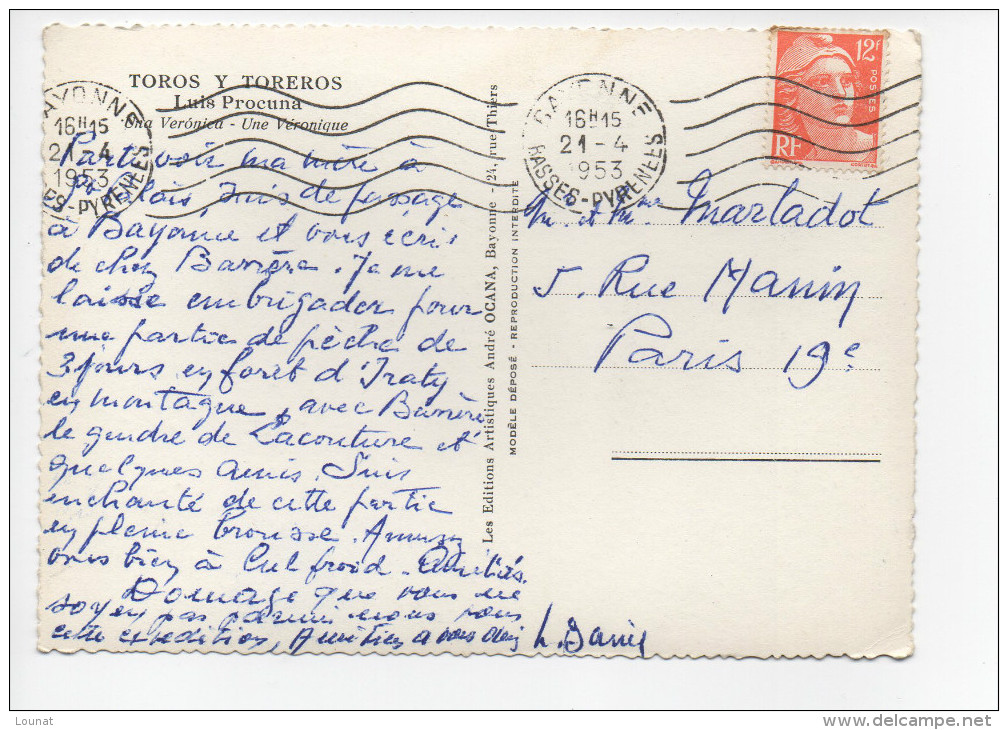 TOROS Y TOREROS
Luis Procuna
Una Verónica - Une Véronique
BAYONNE
16H15
21-4
1953
BASSES-PYRENEES
BAYONNE
16H15
21-4
1953
BASSES-PYRENEES
12F
POSTES
RF
Parti voir ma mère à
suis de passage
à Bayonne et vous ecris
de chez Barrère. Je me
laisse embrigader pour
une partie de pêche de
3 jours en forêt d'Iraty
en montagne, avec Barrère
le gendre de Lacouture et
quelques amis. Suis
enchanté de cette partie
en pleine brousse. Amusez
vous bien à Cul froid - Amitiés.
Domage que vous ne
soyez pas parmi nous pour
cette expedition, Amitiés a vous deux
Les Editions Artistiques André OCANA, Bayonne - 24, rue Thiers
MODÈLE DÉPOSÉ - REPRODUCTION INTERDITE
M. et Mme Marladot
5. Rue Manin
Paris 19e
Lounat
http://www.delcampe.net